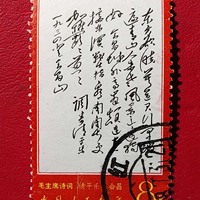 东方欲晓莫道君行早
踏遍青山人未老风景这边独
好会昌城外高峰颠连直
接东溟战士指看南粤更
加郁郁葱葱调寄清平乐
一九三四年登会昌山
毛主席诗词 清平乐 会昌
8